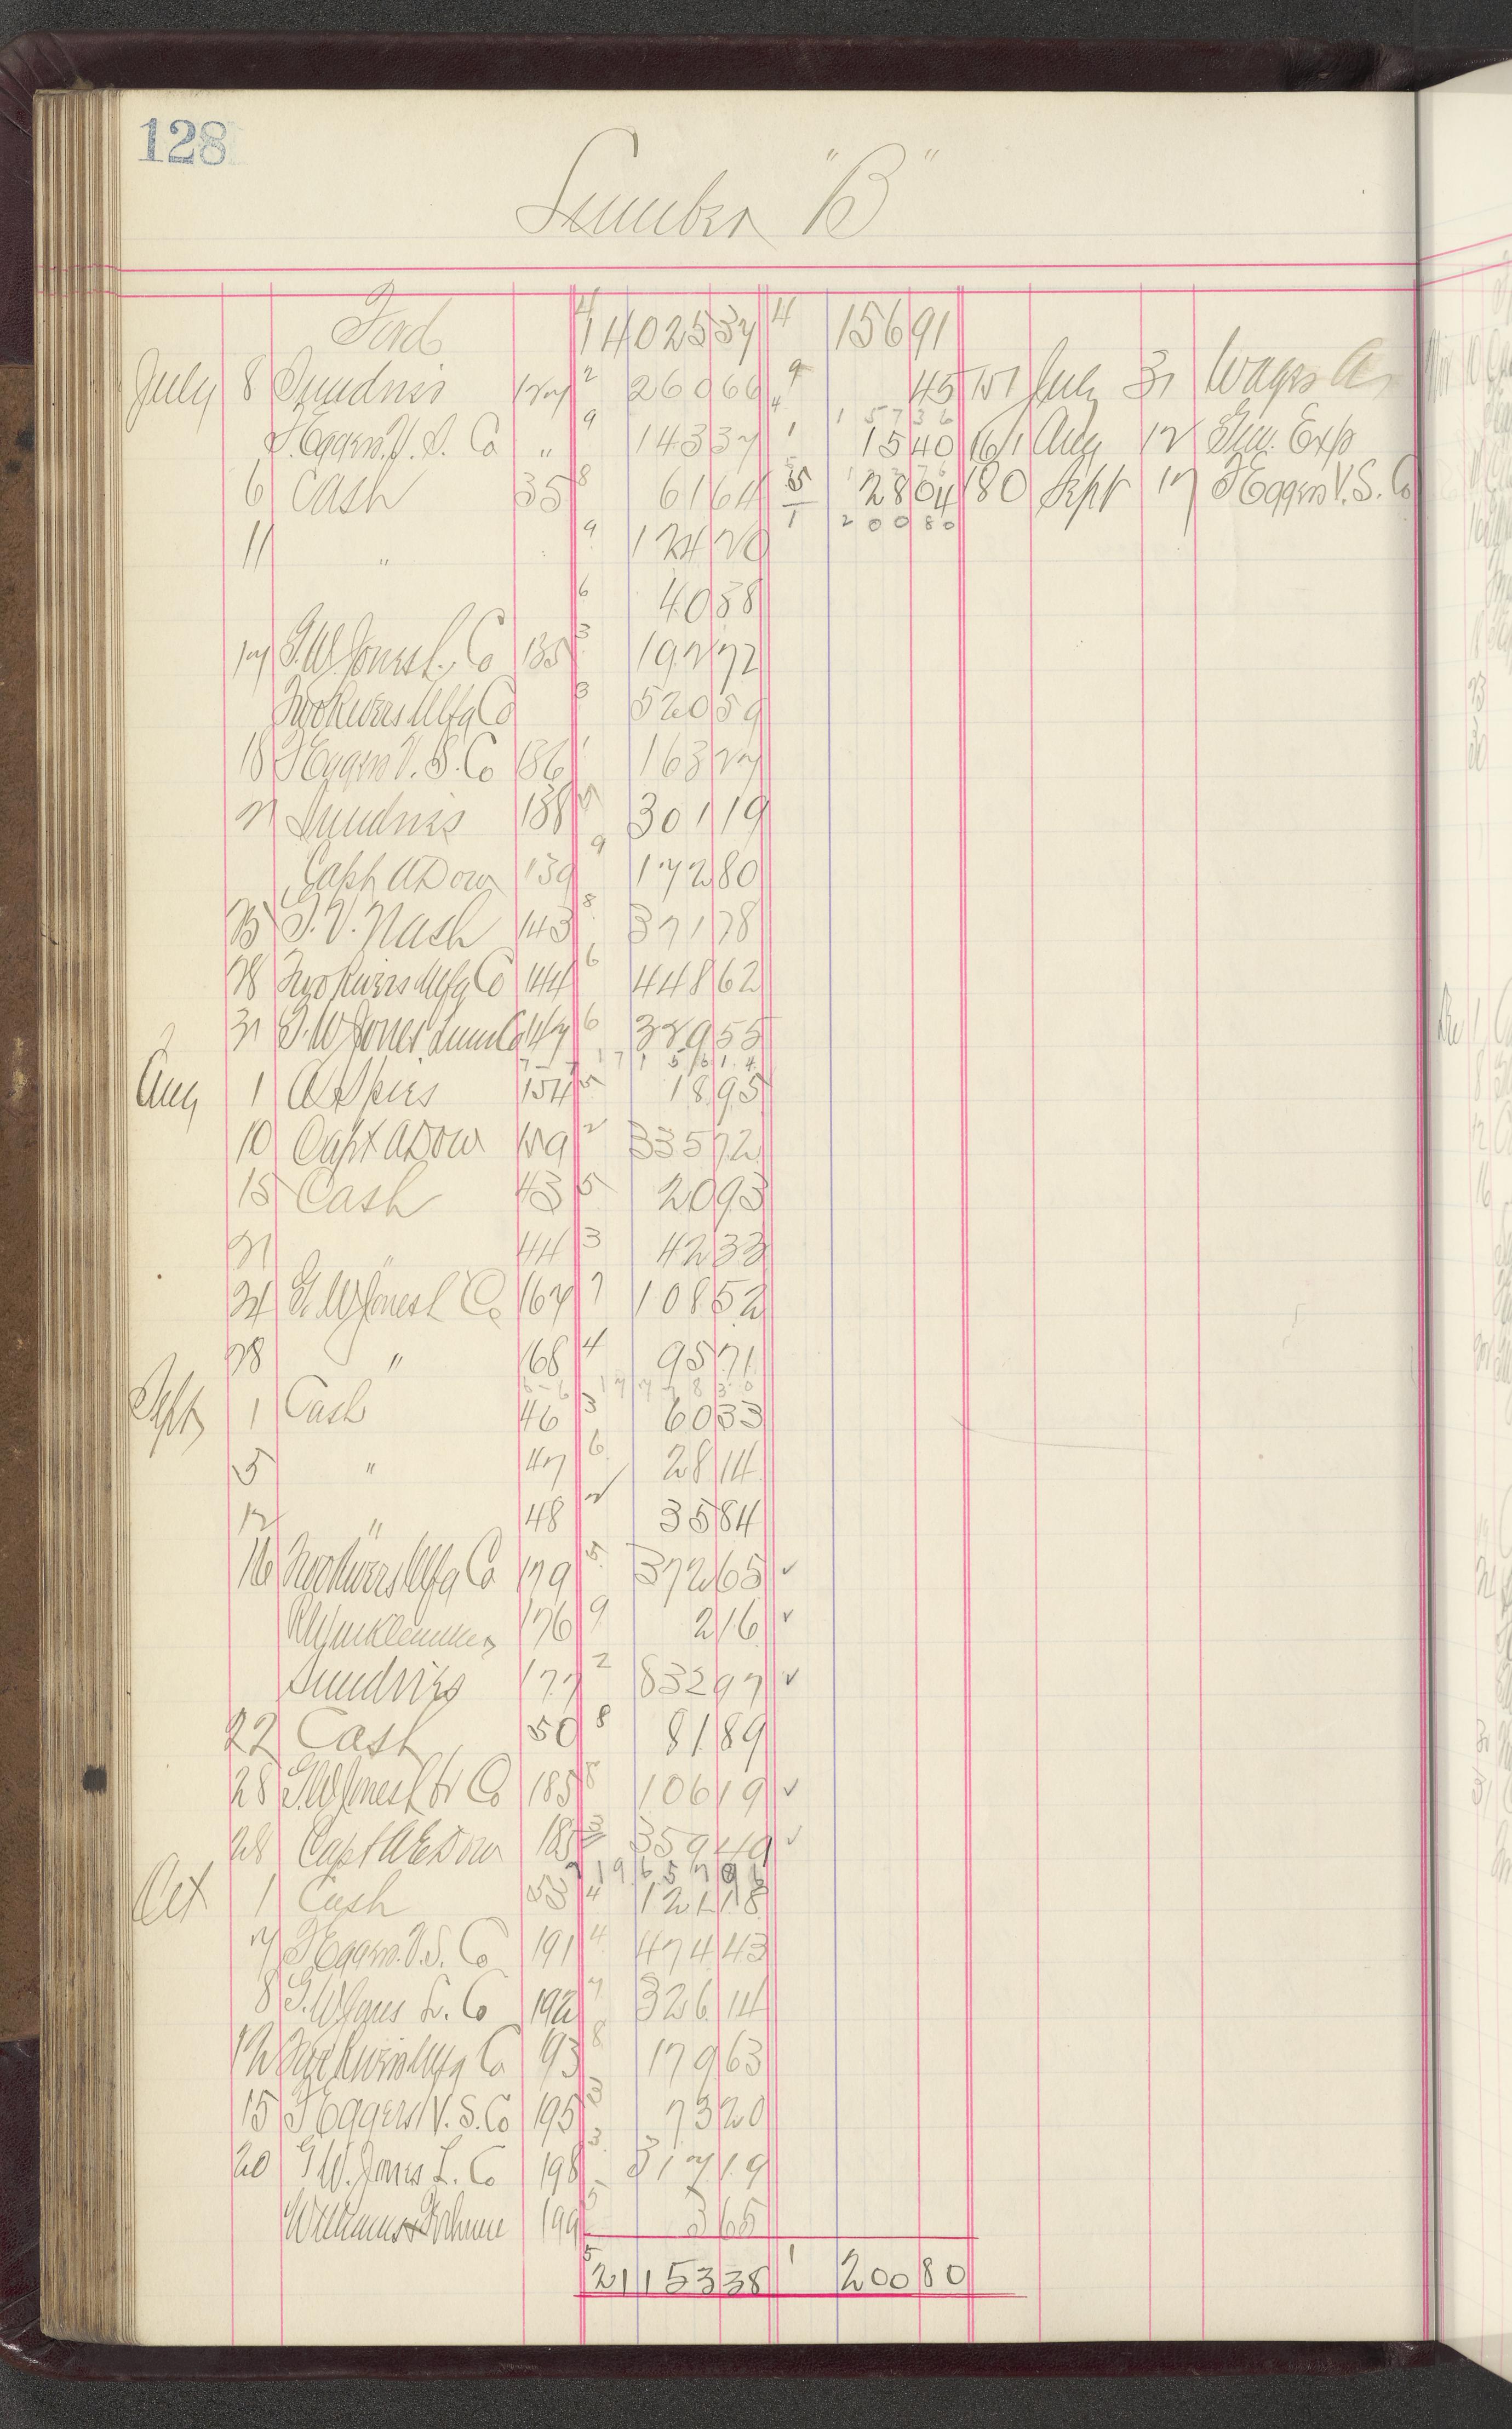 128
Lumber "B"
Ford 4 14025 37 4 156 91
July 8 Sundries 127 2 260 66 9 45 151 July 31 Wages
F. Eggers V. S. Co " 9 143 37 1 15 40 161 Aug 12 Gen. Exp
6 Cash 35 8 61 64 5 28 04 180 Sept 17 F Eggers V. S. Co
1 200 80
11 " 9 124 20
6 40 38
17 G. W. Jones L. Co 135 3 192 72
Two Rivers Mfg Co 3 520 59
18 F Eggers V. S. Co 136 1 163 27
21 Sundries 138 301 19
Capt A Dow 139 9 172 80
25 T. V. Nash 143 8 371 78
28 Two Rivers Mfg Co 144 6 448 62
31 G. W Jones Lum Co 147 6 329 55
17156 14
Aug 1 A Spies 154 5 18 95
10 Capt A Dow 159 2 335 72
15 Cash 43 5 20 93
21 " 44 3 42 33
24 G. W Jones L Co 167 7 108 52
28 " 168 4 95 71
17778 30
Sept 1 Cash 46 3 60 33
5 " 47 6 28 14
12 " 48 2 35 84
16 Two Rivers Mfg Co 179 5 372 65 ✓
176 9 2 16 ✓
Sundries 177 2 832 97 ✓
22 Cash 50 8 81 89
28 G. W Jones Lbr Co 185 8 106 19 ✓
28 Capt A E Dow 185 3 359 49 ✓
19657 96
Oct 1 Cash 53 4 121 18
7 F Eggers V. S. Co 191 4 474 43
8 G. W Jones L. Co 192 7 326 14
12 Two Rivers Mfg Co 93 8 179 63
15 F Eggers V. S. Co 195 3 73 20
20 G W. Jones L. Co 198 3 317 19
199 5 3 65
5 21153 38 1 200 80